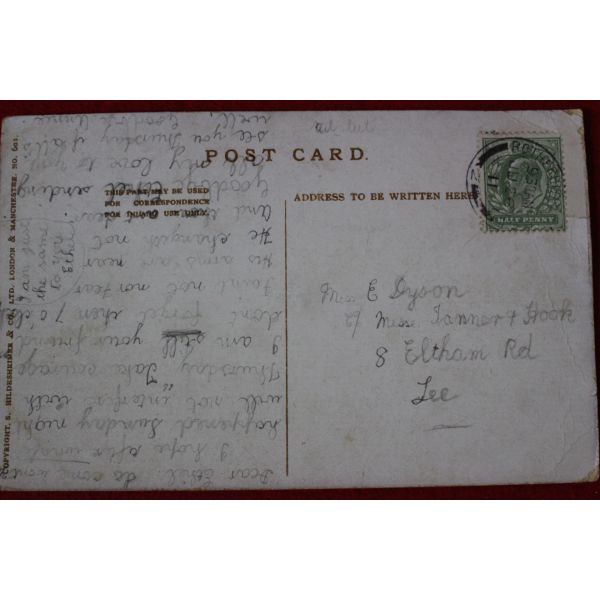 POST CARD.
THIS PART MAY BE USED
FOR CORRESPONDENCE
FOR INLAND USE ONLY.
ADDRESS TO BE WRITTEN HERE
HALF PENNY
Miss E Dyson
c/o Misses Tanner & Hook
8 Eltham Rd
Lee
Dear Ethel. do come wont
I hope after what
happened Sunday night
will not "interfere with
Thursday Take courage
I am still your friend
dont forget then
faint not nor fear
His arms are near
He changeth not
and
Goodbye sending
all my love to you
see you Thursday if all's
well.
COPYRIGHT, S. HILDESHEIMER & CO., LTD. LONDON & MANCHESTER. NO. 621.